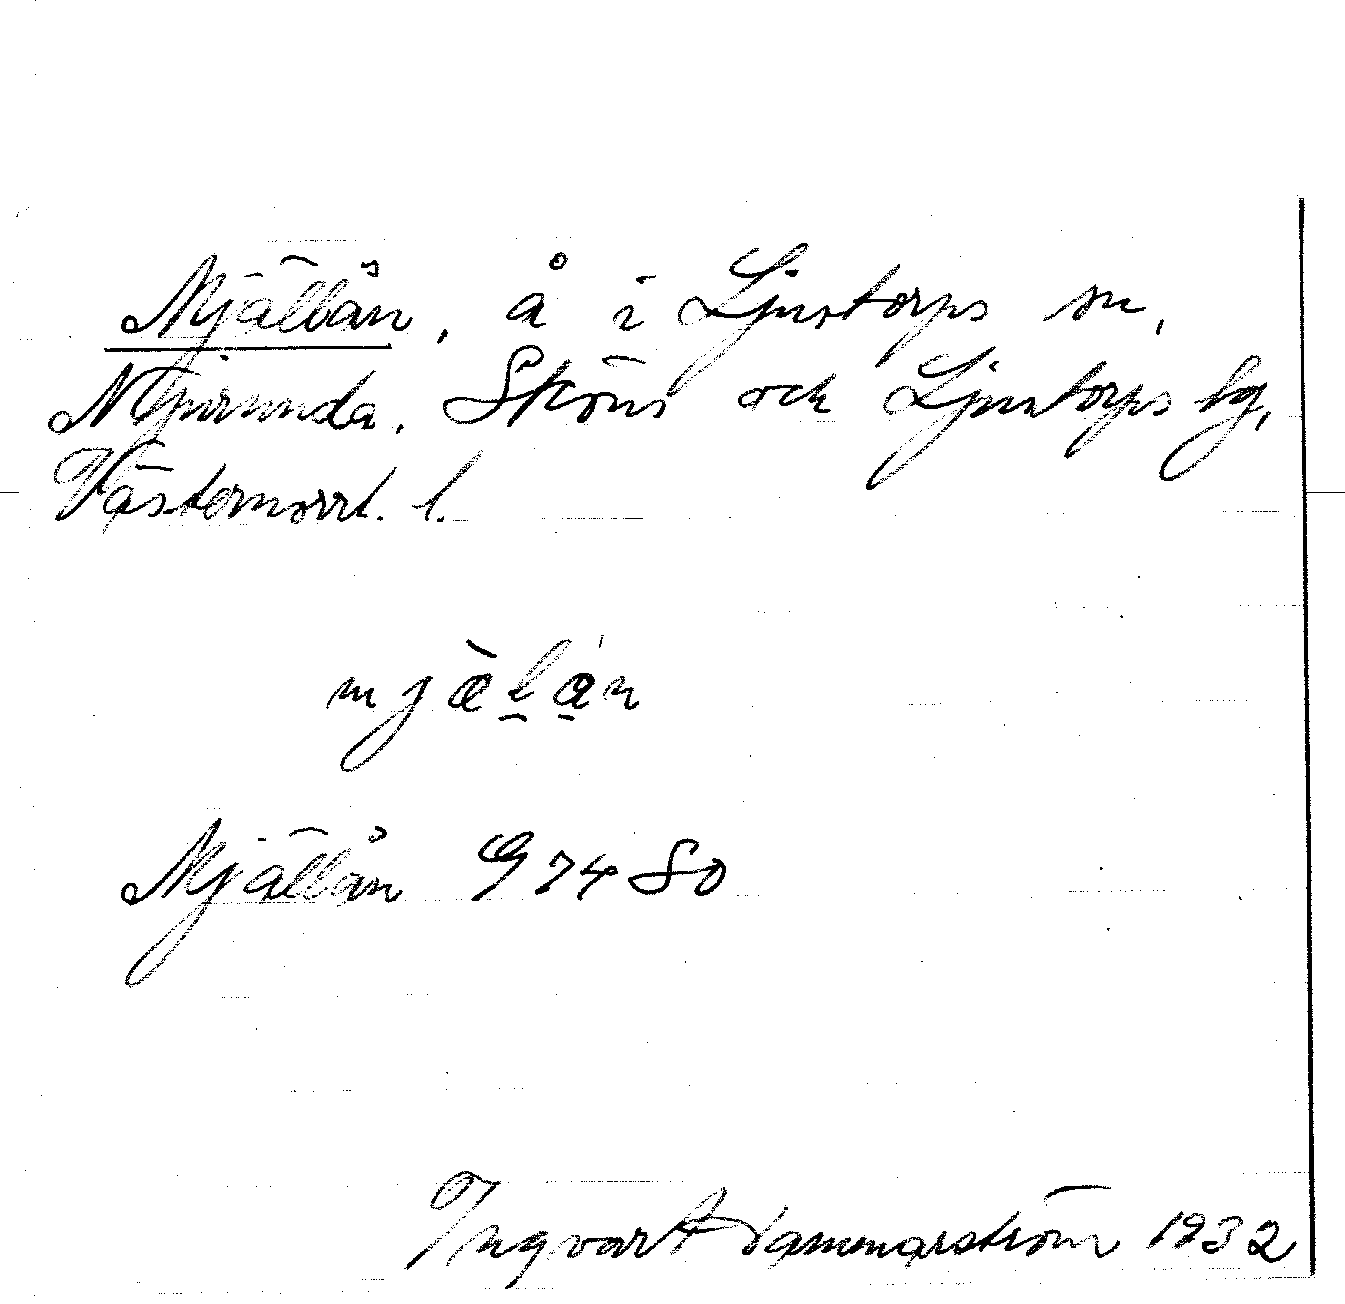 Mjällån, å i Ljustorps sn,
Njurunda, Sköns och Ljustorps tg,
Västernorrl. l.
mjæ̀lån
Mjällån G 7480
Ingvar 1932